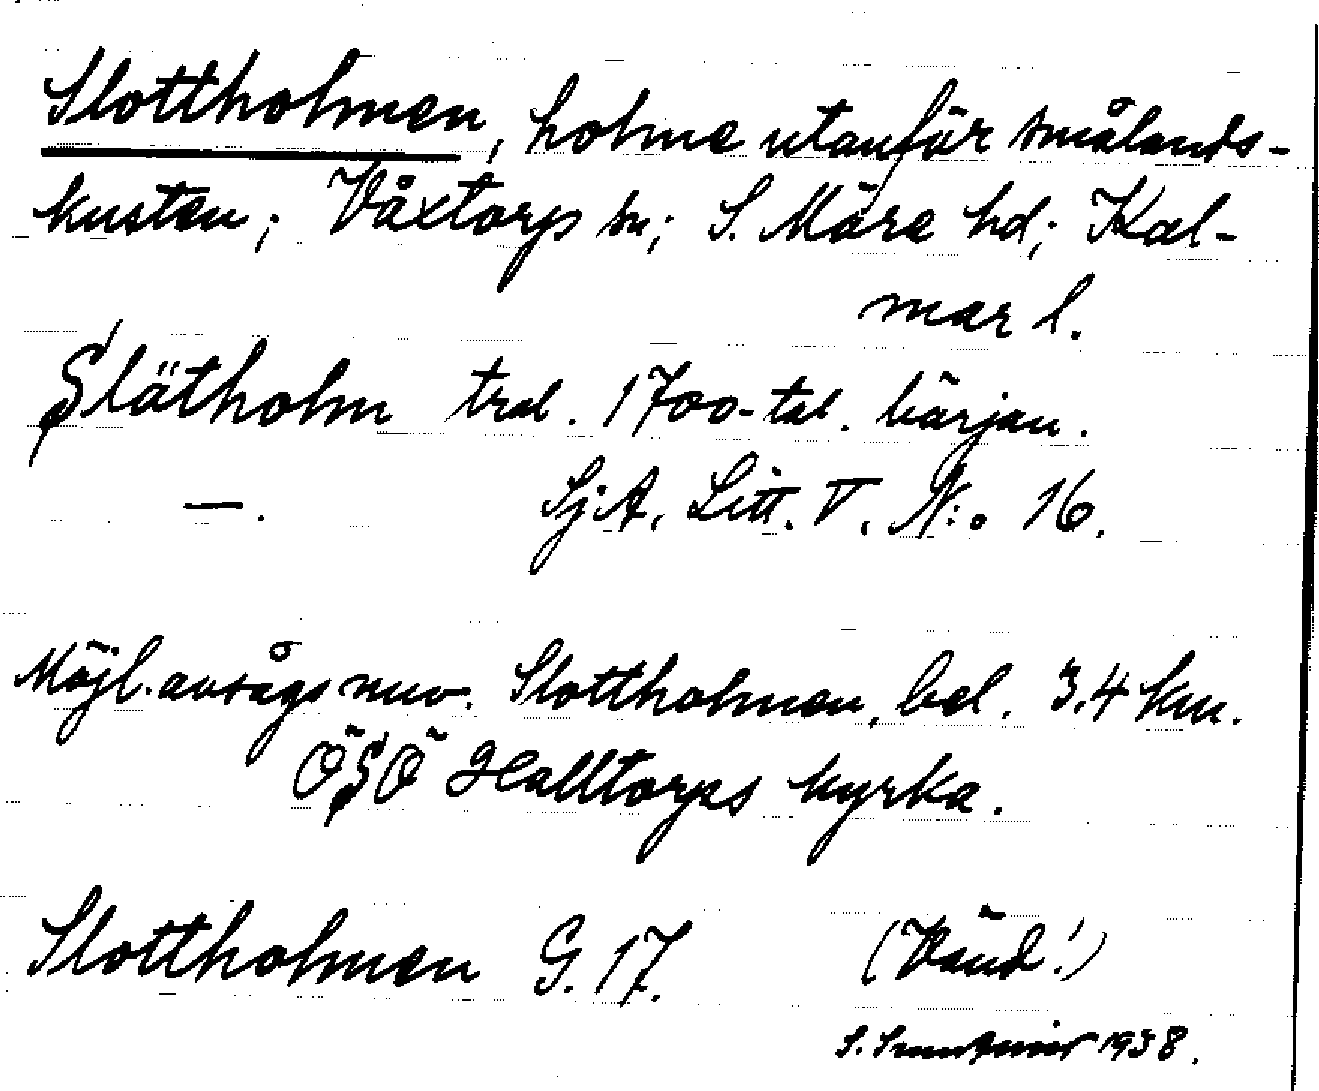 Slottholmen, holme utanför smålands-
kusten; Växtorps sn; S. Möre hd; Kal-
mar l.
Slätholm tral. 1700-tal. början.
—. SjA. Litt. V. N:o 16.
Möjl. avsågs nuv. Slottholmen, bel. 3.4 km.
ÖSÖ Halltorps kyrka.
Slottholmen G. 17. (Vänd!)
S. 1938.